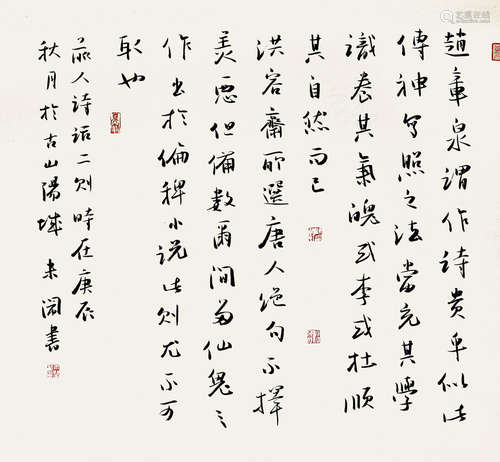 趙章泉謂作詩貴乎似此
傳神寫照之法當充其學
識養其氣魄或李或杜順
其自然而已
洪容齋所選唐人絕句不擇
美惡但備數爾間多仙鬼之
作出於偏稗小說此則尤不可
取也
前人詩話二則時在庚辰
秋月於古山陽城書